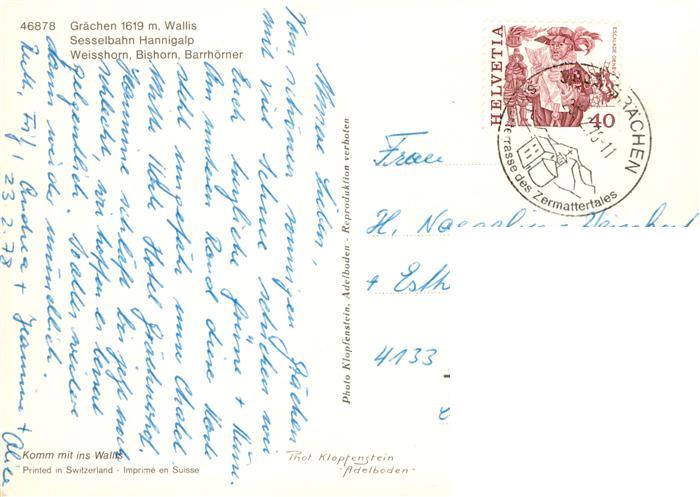 46878 Grächen 1619 m, Wallis
Sesselbahn Hannigalp
Weisshorn, Bishorn, Barrhörner
Meine Lieben,
Vom schönen sonnigen Grächen
mit viel Schnee schicken wir
Euch herzliche Grüsse +
Am anderen Rand dieser Karte
steht ungefähr unser Chalet.
Mitte Hotel Grächnerhof.
Jeannine schläft bis jetzt noch
schlecht, wir hoffen es kommt
gelegentlich. So alles weitere
dann wieder mündlich.
Andrea + Jeannine + Alice
23.2.78
Komm mit ins Wallis
Printed in Switzerland - Imprimé en Suisse
Photo Klopfenstein, Adelboden - Reproduktion verboten
Phot. Klopfenstein
- Adelboden -
HELVETIA
ESCALADE GENÈVE
40
GRÄCHEN
terrasse des Zermattertales
Frau
H.
+ Esth
4133